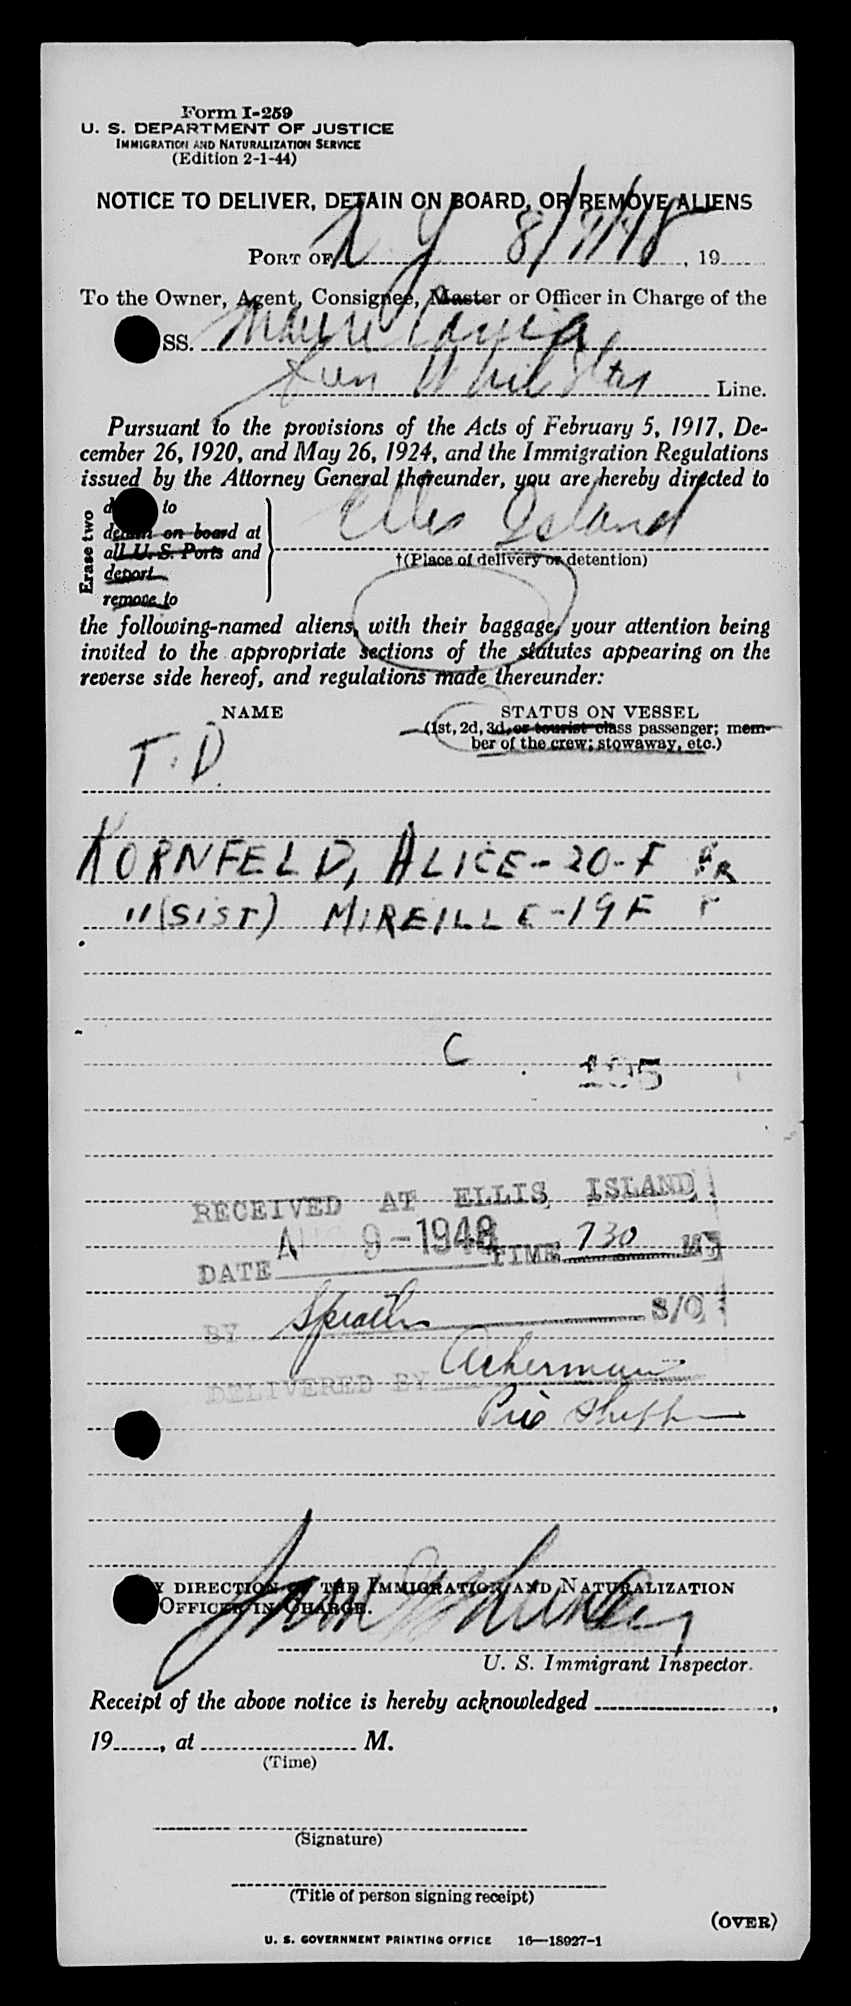 Form I-259
U. S. DEPARTMENT OF JUSTICE
IMMIGRATION AND NATURALIZATION SERVICE
(Edition 2-1-44)
NOTICE TO DELIVER, DETAIN ON BOARD, OR REMOVE ALIENS
PORT OF N Y 8/9/48, 19
To the Owner, Agent, Consignee, Master or Officer in Charge of the
SS. Mauretania
Cun White Star Line.
Pursuant to the provisions of the Acts of February 5, 1917, De-
cember 26, 1920, and May 26, 1924, and the Immigration Regulations
issued by the Attorney General thereunder, you are hereby directed to
Erase two
to
detain on board at
all U. S. Ports and
deport
remove to
Ellis Island
†(Place of delivery or detention)
the following-named aliens, with their baggage, your attention being
invited to the appropriate sections of the statutes appearing on the
reverse side hereof, and regulations made thereunder:
NAME STATUS ON VESSEL
(1st, 2d, 3d, or tourist class passenger; mem-
ber of the crew; stowaway, etc.)
T. D.
KORNFELD, ALICE - 20 - F FR
" (SIST) MIREILLE - 19 F
C
105
RECEIVED AT ELLIS ISLAND
DATE AUG 9-1948 TIME 730 M
BY S/O
DELIVERED BY Ackerman
BY DIRECTION OF THE IMMIGRATION AND NATURALIZATION
OFFICER IN CHARGE.
U. S. Immigrant Inspector.
Receipt of the above notice is hereby acknowledged ,
19 , at M.
(Time)
(Signature)
(Title of person signing receipt)
(OVER)
U. S. GOVERNMENT PRINTING OFFICE 16—18927-1